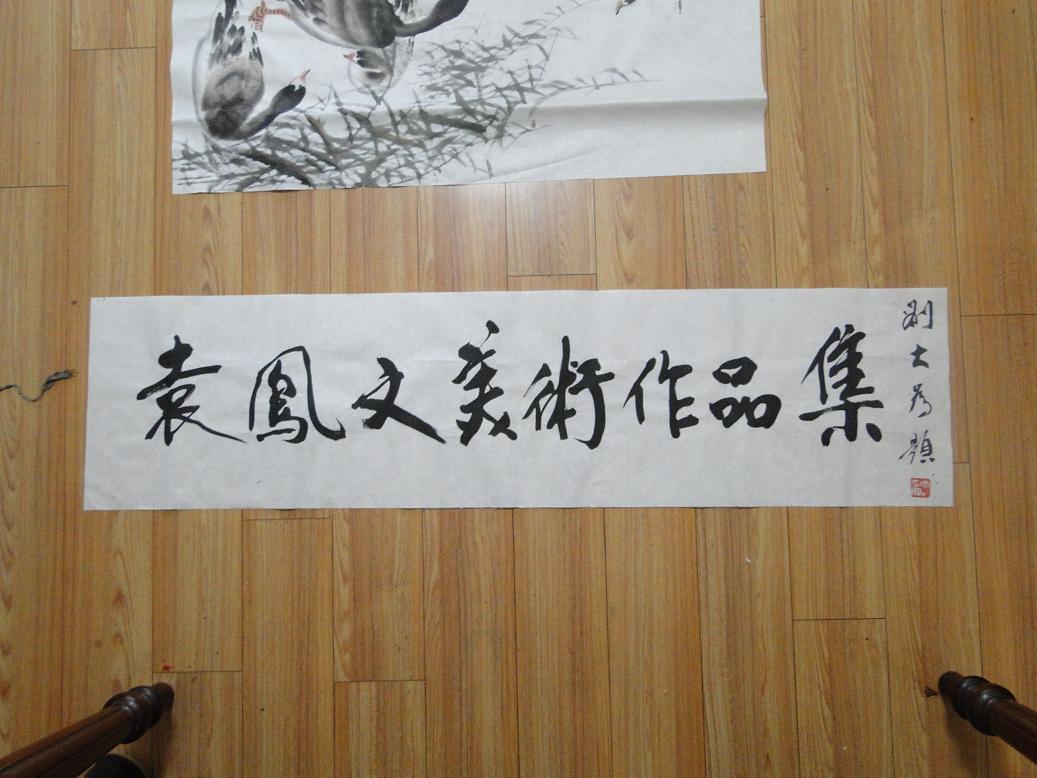 袁鳳文美術作品集
刘大为題